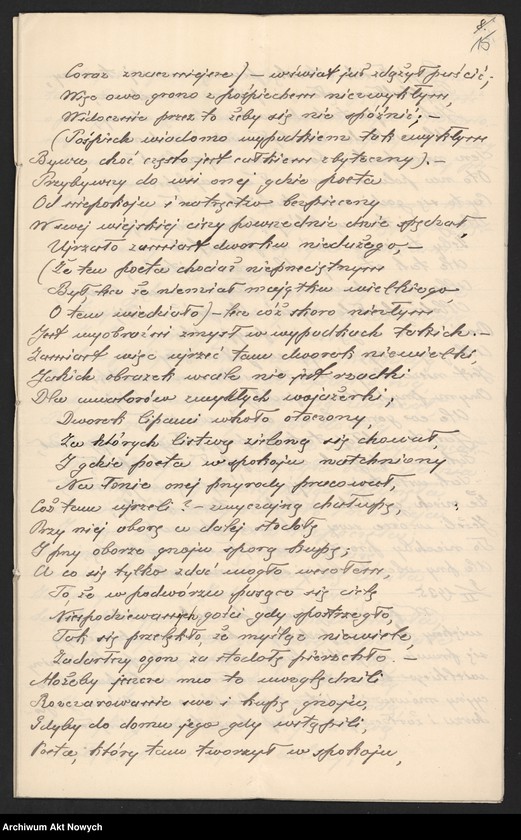 8.
15
Coraz znaczniejsze) – wświat już zdążył puścić;
Więc owo grono z pośpiechem niezwykłym,
Widocznie przez to żeby się nie spóźnić; –
(Pośpiech wiadomo wypadkiem tak zwykłym
Bywa, choć często jest całkiem zbyteczny). –
Przybywszy do wsi onej gdzie poeta
Od niepokoju i natręctw bezpieczny
W swej wiejskiej ciszy powszednie dnie spędzał,
Ujrzało zamiast dworku niedużego, –
(Że ten poeta chociaż nieprzeciętnym
Był, lecz że niemiał majątku wielkiego,
O tem wiedziało) – lecz cóż skoro niezłym
Jest wyobraźni zmysł w wypadkach takich. –
Zamiast więc ujrzeć tam dworek niewielki
Jakich obrazek wcale nie jest rzadki
Dla amatorów zwykłych wojażerki,
Dworek lipami wkoło otoczony,
Za których listwą zieloną się chował,
I gdzie poeta w spokoju natchniony
Na łonie onej przyrody pracował,
Cóż tam ujrzeli? – zwyczajną chałupę,
Przy niej oborę a dalej stodołę
I przy oborze gnoju sporą kupę;
A co się tylko zdać mogło wesołem,
To, że w podwórzu pasące się cielę
Niespodziewanych gości gdy spostrzegło,
Tak się przelękło, że myśląc niewiele,
Zadarłszy ogon za stodołę pierzchło. –
Możeby jeszcze mu to uwzględnili
Rozczarowanie swe i kupę gnoju,
Gdyby do domu jego gdy wstąpili,
Poeta, który tam tworzył w spokoju,
Archiwum Akt Nowych